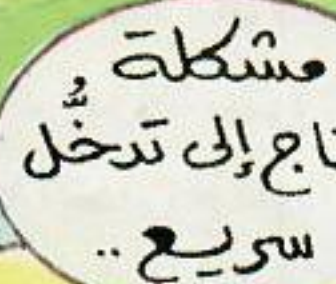 مشكلة
تاج إلى تدخُّل
سريع ..